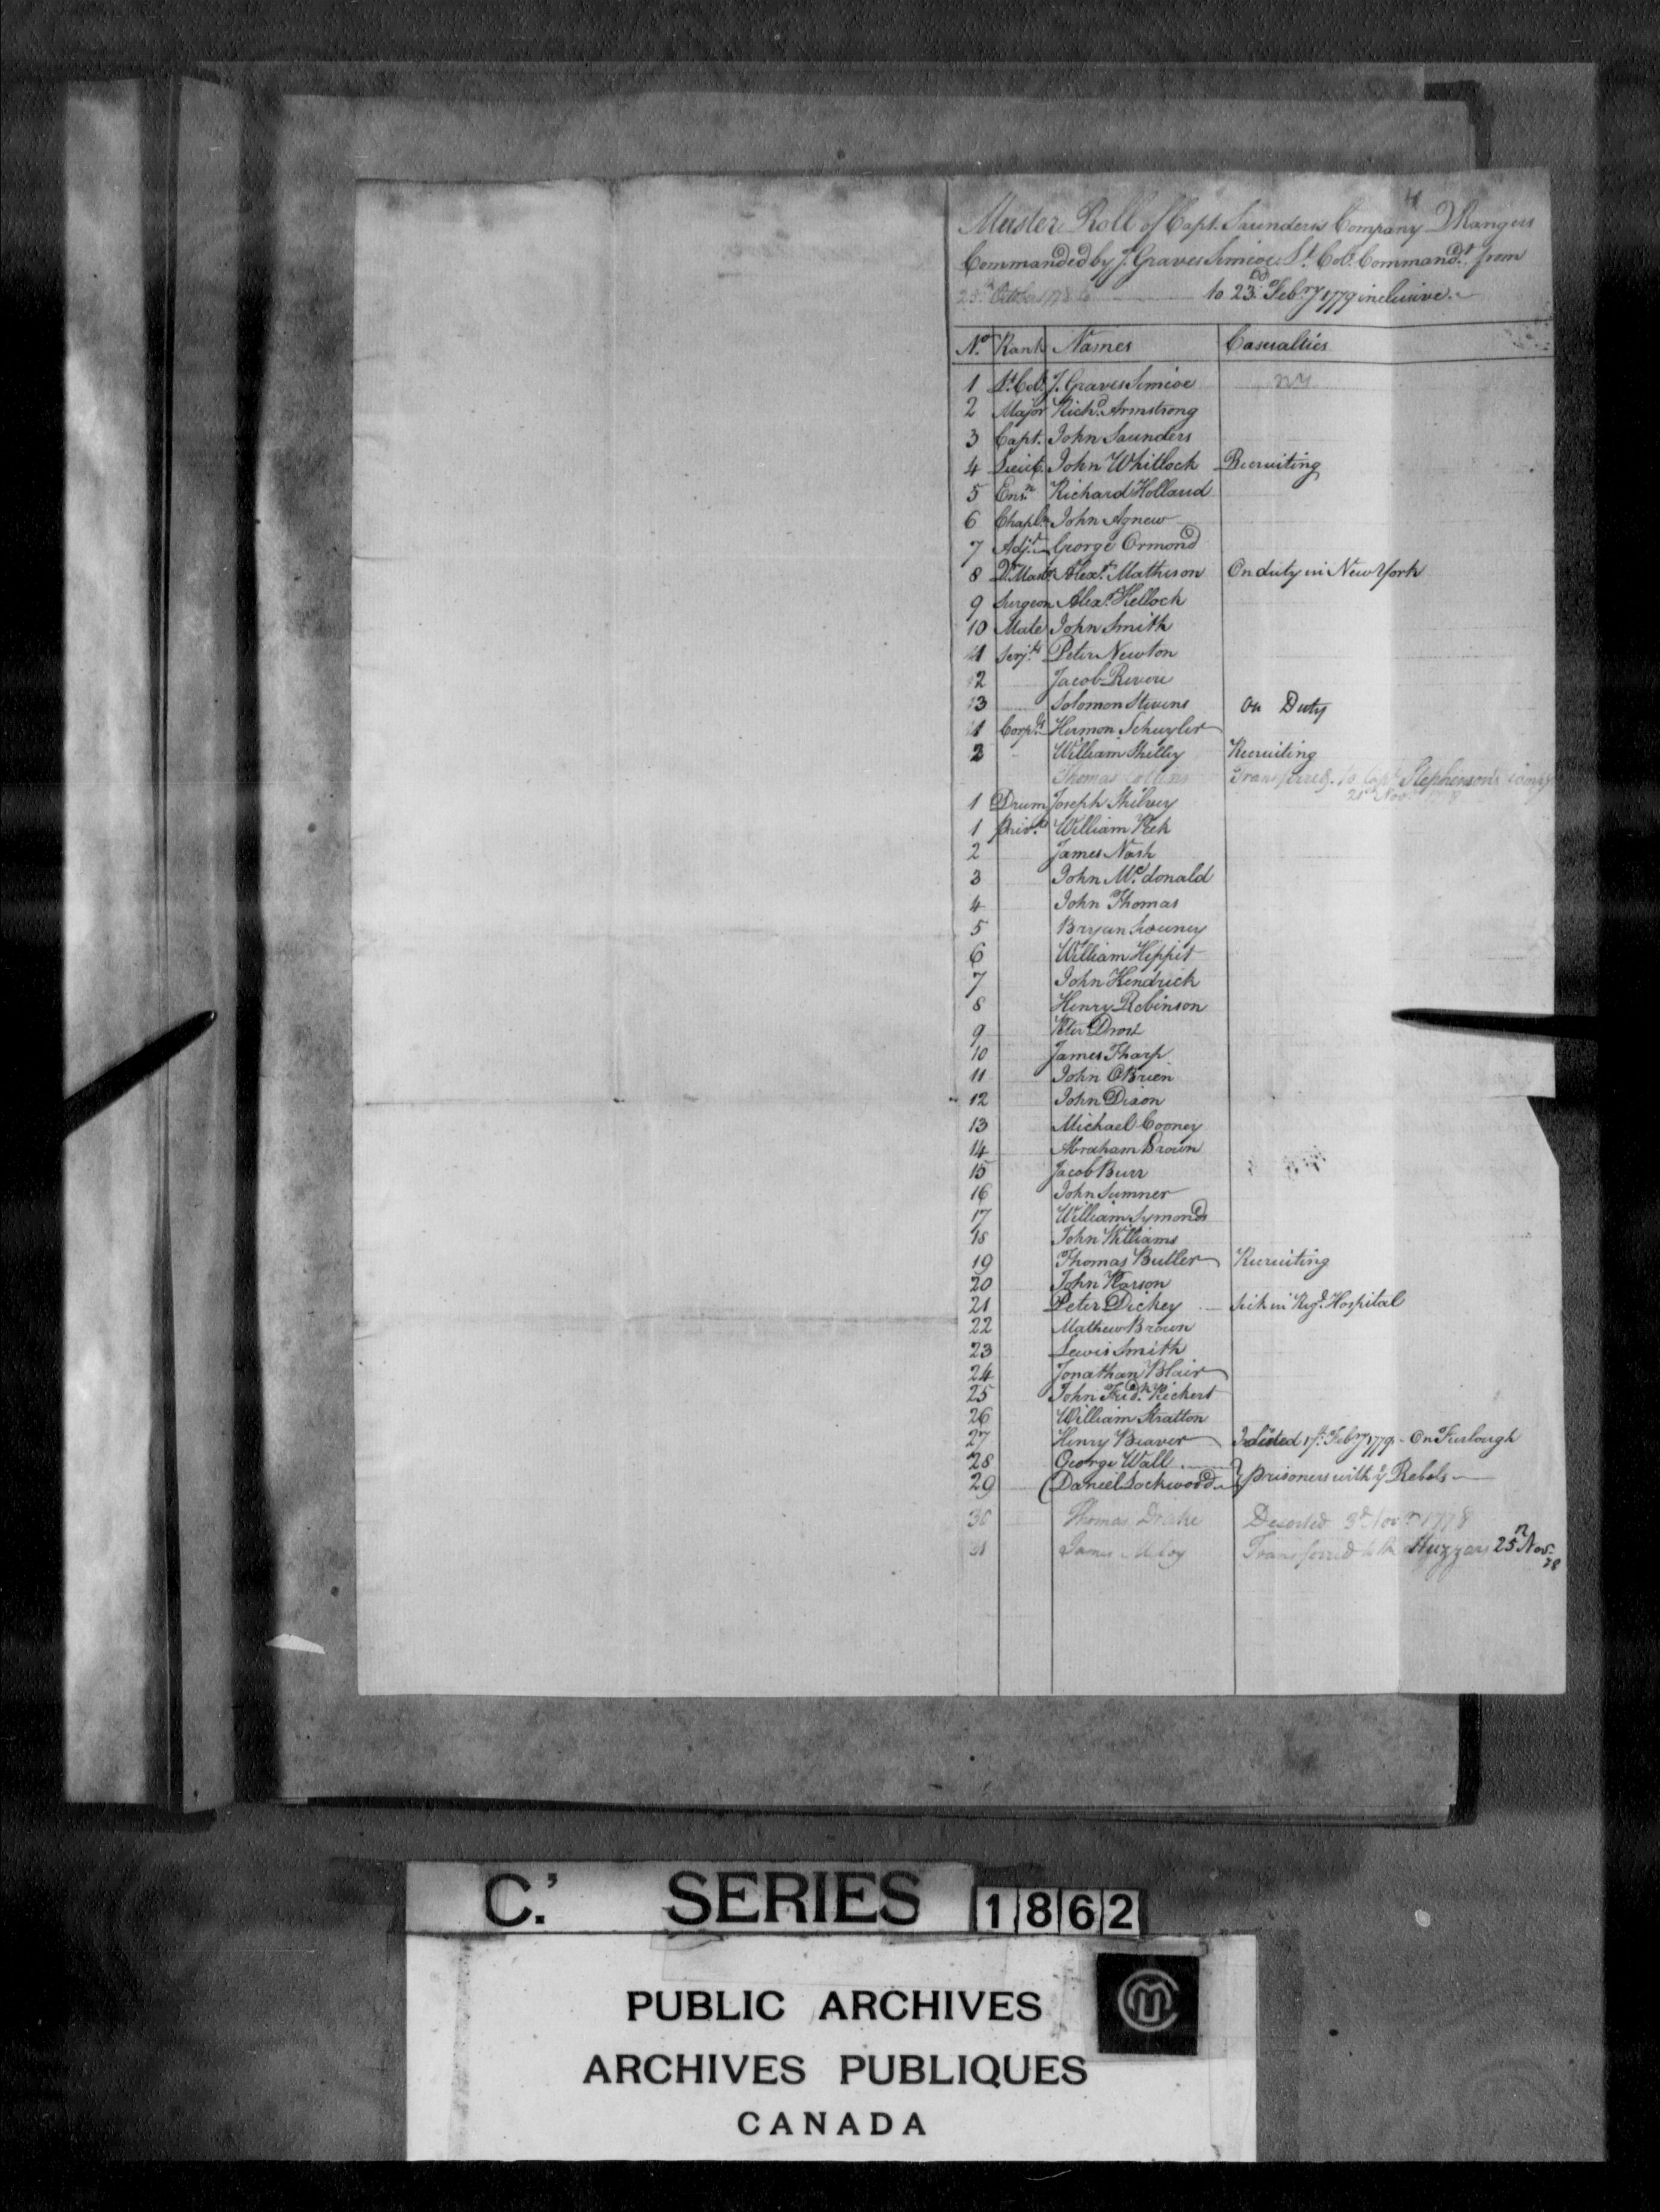 Muster Roll of Capt. Saunders Company Q Rangers
Commanded by J. Graves Simcoe Lt. Col. Commandt. from
25th October 1778 to 23d Febry 1779 inclusive
No. Rank Names Casualties
1 Lt. Col. J. Graves Simcoe
2 Major Richd. Armstrong
3 Capt. John Saunders
4 Lieut. John Whitlock Recruiting
5 Ensn. Richard Holland
6 Chapln. John Agnew
7 Adjt. George Ormond
8 Qr. Mastr. Alexr. Matheson On duty in New York
9 Surgeon Alexr. Kellock
10 Mate John Smith
11 Serjts. Peter Newton
12 Jacob Revere
13 Solomon Stevens On Duty
1 Corpls. Hermon Schuyler
2 William Shelley Recruiting
Thomas Collins Transferred to Capt. Stephenson's Compy
25th Nov
1 Drum Joseph Shilvey
1 Privts. William Peek
2 James Nash
3 John Mc.donald
4 John Thomas
5 Bryan Sweeney
6 William Heppit
7 John Kendrick
8 Henry Robinson
9 Peter Drost
10 James Tharp
11 John OBrien
12 John Dixon
13 Michael Cooney
14 Abraham Brown
15 Jacob Burr
16 John Sumner
17 William Symonds
18 John Williams
19 Thomas Butler Recruiting
20 John Karson
21 Peter Dickey Sick in Regl. Hospital
22 Mathew Brown
23 Lewis Smith
24 Jonathan Blair
25 John Fredk. Rickert
26 William Stratton
27 Henry Beaver Inlisted 17th Febry 1779 - On Furlough
28 George Wall
29 Daniel Lockwood } prisoners with ye Rebels
30 Thomas Drake Deserted 3d Novr 1778
31 James Transferred to the Huzzars 25n Nov. 78
C.' SERIES 1862
PUBLIC ARCHIVES
ARCHIVES PUBLIQUES
CANADA